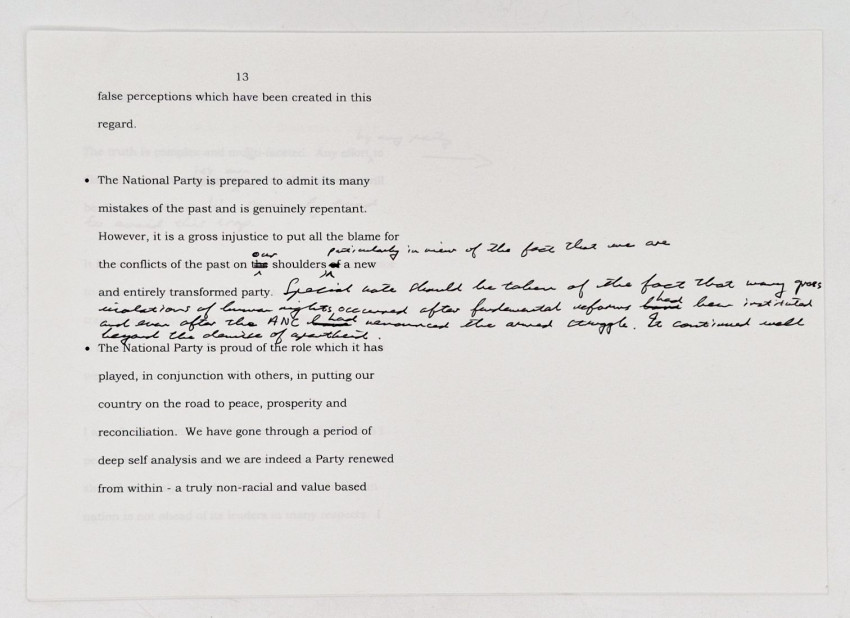 13
false perceptions which have been created in this
regard.
• The National Party is prepared to admit its many
mistakes of the past and is genuinely repentant.
However, it is a gross injustice to put all the blame for
our particularly in view of the fact that we are
the conflicts of the past on the shoulders of a new
and entirely transformed party. Special note should be taken of the fact that many gross
violations of human rights occurred after fundamental reforms had been instituted
and even after the ANC had renounced the armed struggle. It continued well
beyond the demise of apartheid.
• The National Party is proud of the role which it has
played, in conjunction with others, in putting our
country on the road to peace, prosperity and
reconciliation. We have gone through a period of
deep self analysis and we are indeed a Party renewed
from within - a truly non-racial and value based